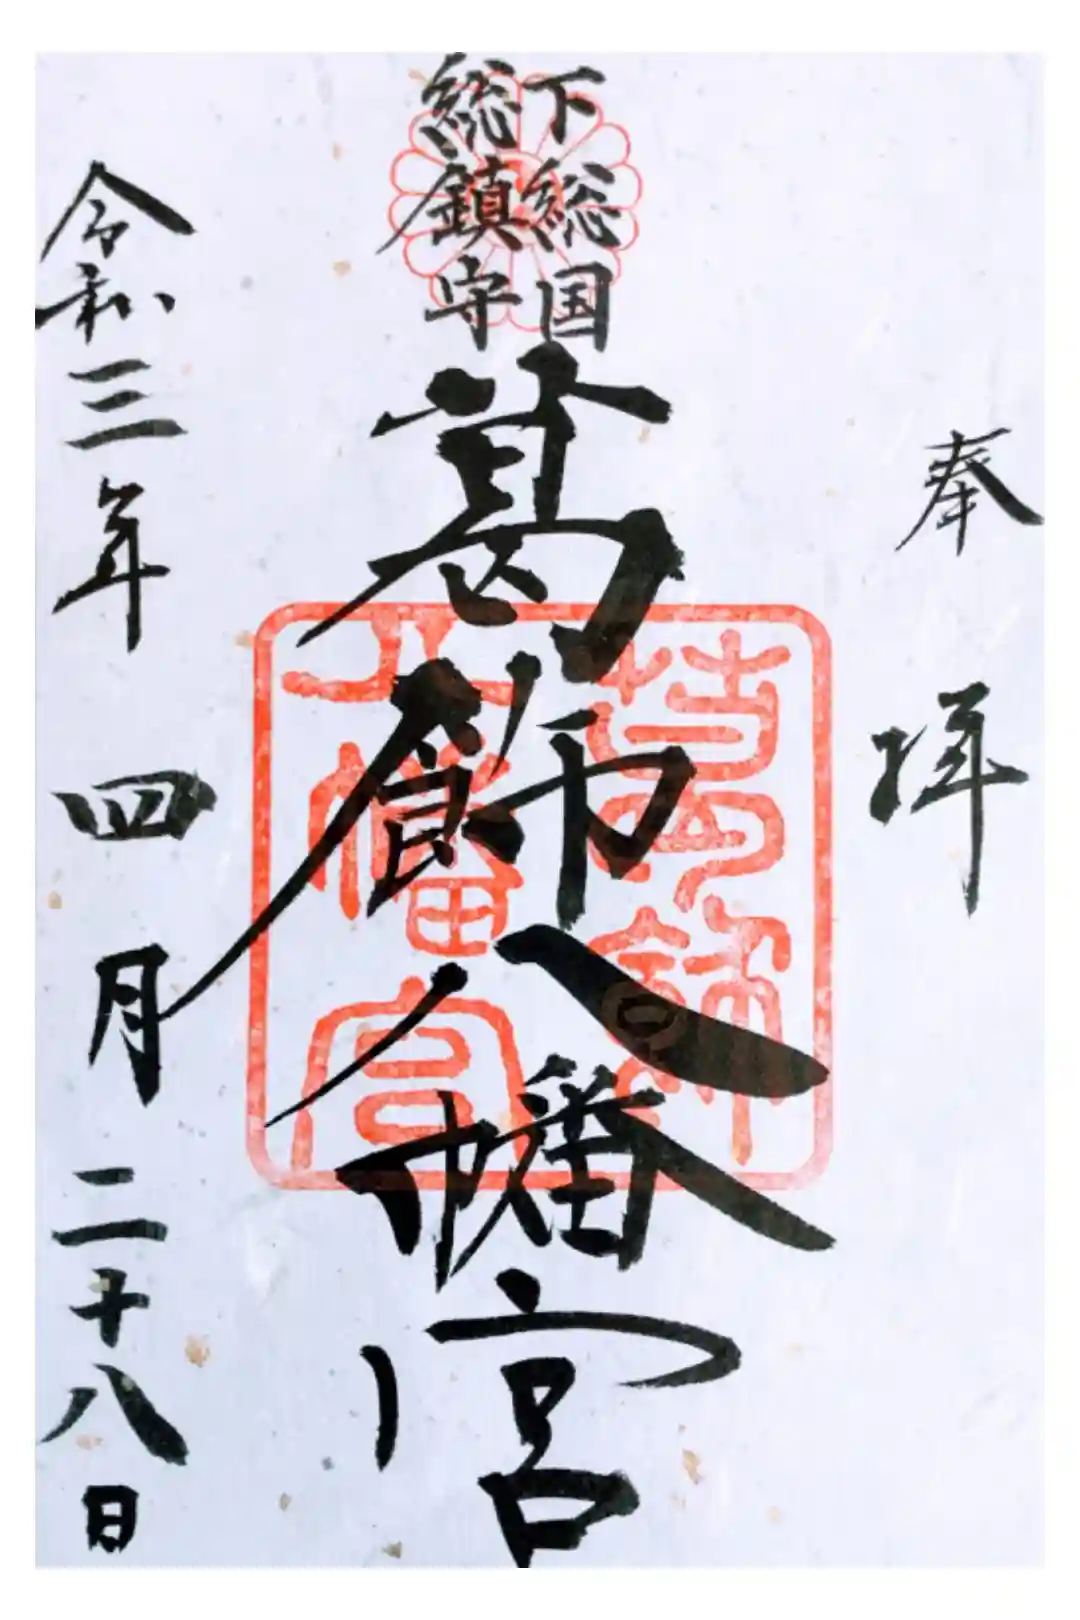 奉拝
下総国
総鎮守
葛飾八幡宮
葛飾
八幡宮
令和三年四月二十八日